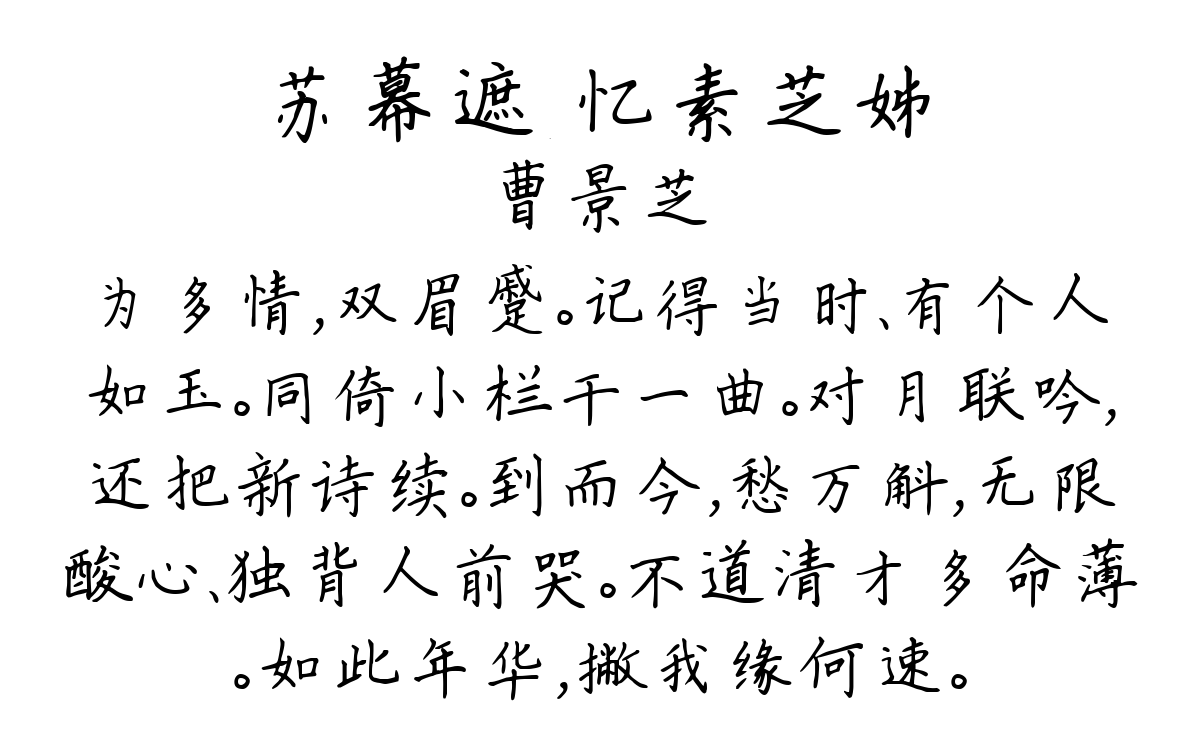 苏幕遮 忆素芝姊
曹景芝
为多情,双眉蹙。记得当时、有个人
如玉。同倚小栏干一曲。对月联吟,
还把新诗续。到而今,愁万斛,无限
酸心、独背人前哭。不道清才多命薄
。如此年华,撇我缘何速。